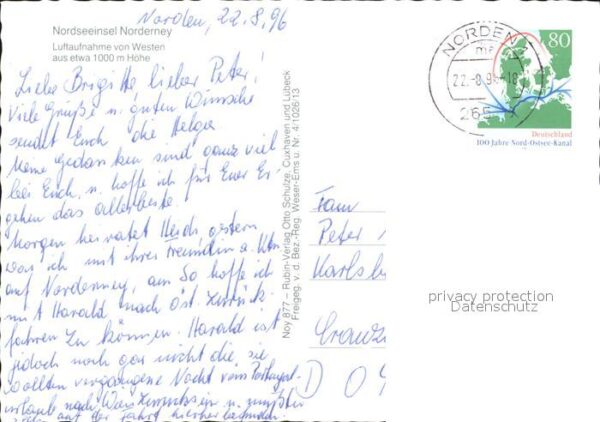 Norden, 22.8.96
Nordseeinsel Norderney
Luftaufnahme von Westen
aus etwa 1000 m Höhe
Liebe Brigitte, lieber Peter!
Viele Grüße u. guten Wünsche
sendet Euch die Helga
Meine Gedanken sind ganz viel
bei Euch, u. hoffe ich für Euer Er-
gehen das allerbeste.
Morgen heiratet Heidi, gestern
war ich mit ihrer Freundin a.
auf Norderney, am So hoffe ich
mit Harald nach Öst. zurück
fahren zu können. Harald ist
jedoch noch gar nicht da, sie
wollten vergangene Nacht vom Portugal-
urlaub nach zurück sein u.
auf der Fahrt hierher
Noy 877 – Rubin-Verlag Otto Schulze, Cuxhaven und Lübeck
Freigeg. v. d. Bez.-Reg. Weser-Ems u. Nr. 4/1026/13
NORDEN
22.-8.96-18
265
80
Deutschland
100 Jahre Nord-Ostsee-Kanal
Fam
Peter
Karlsb
D 0
privacy protection
Datenschutz